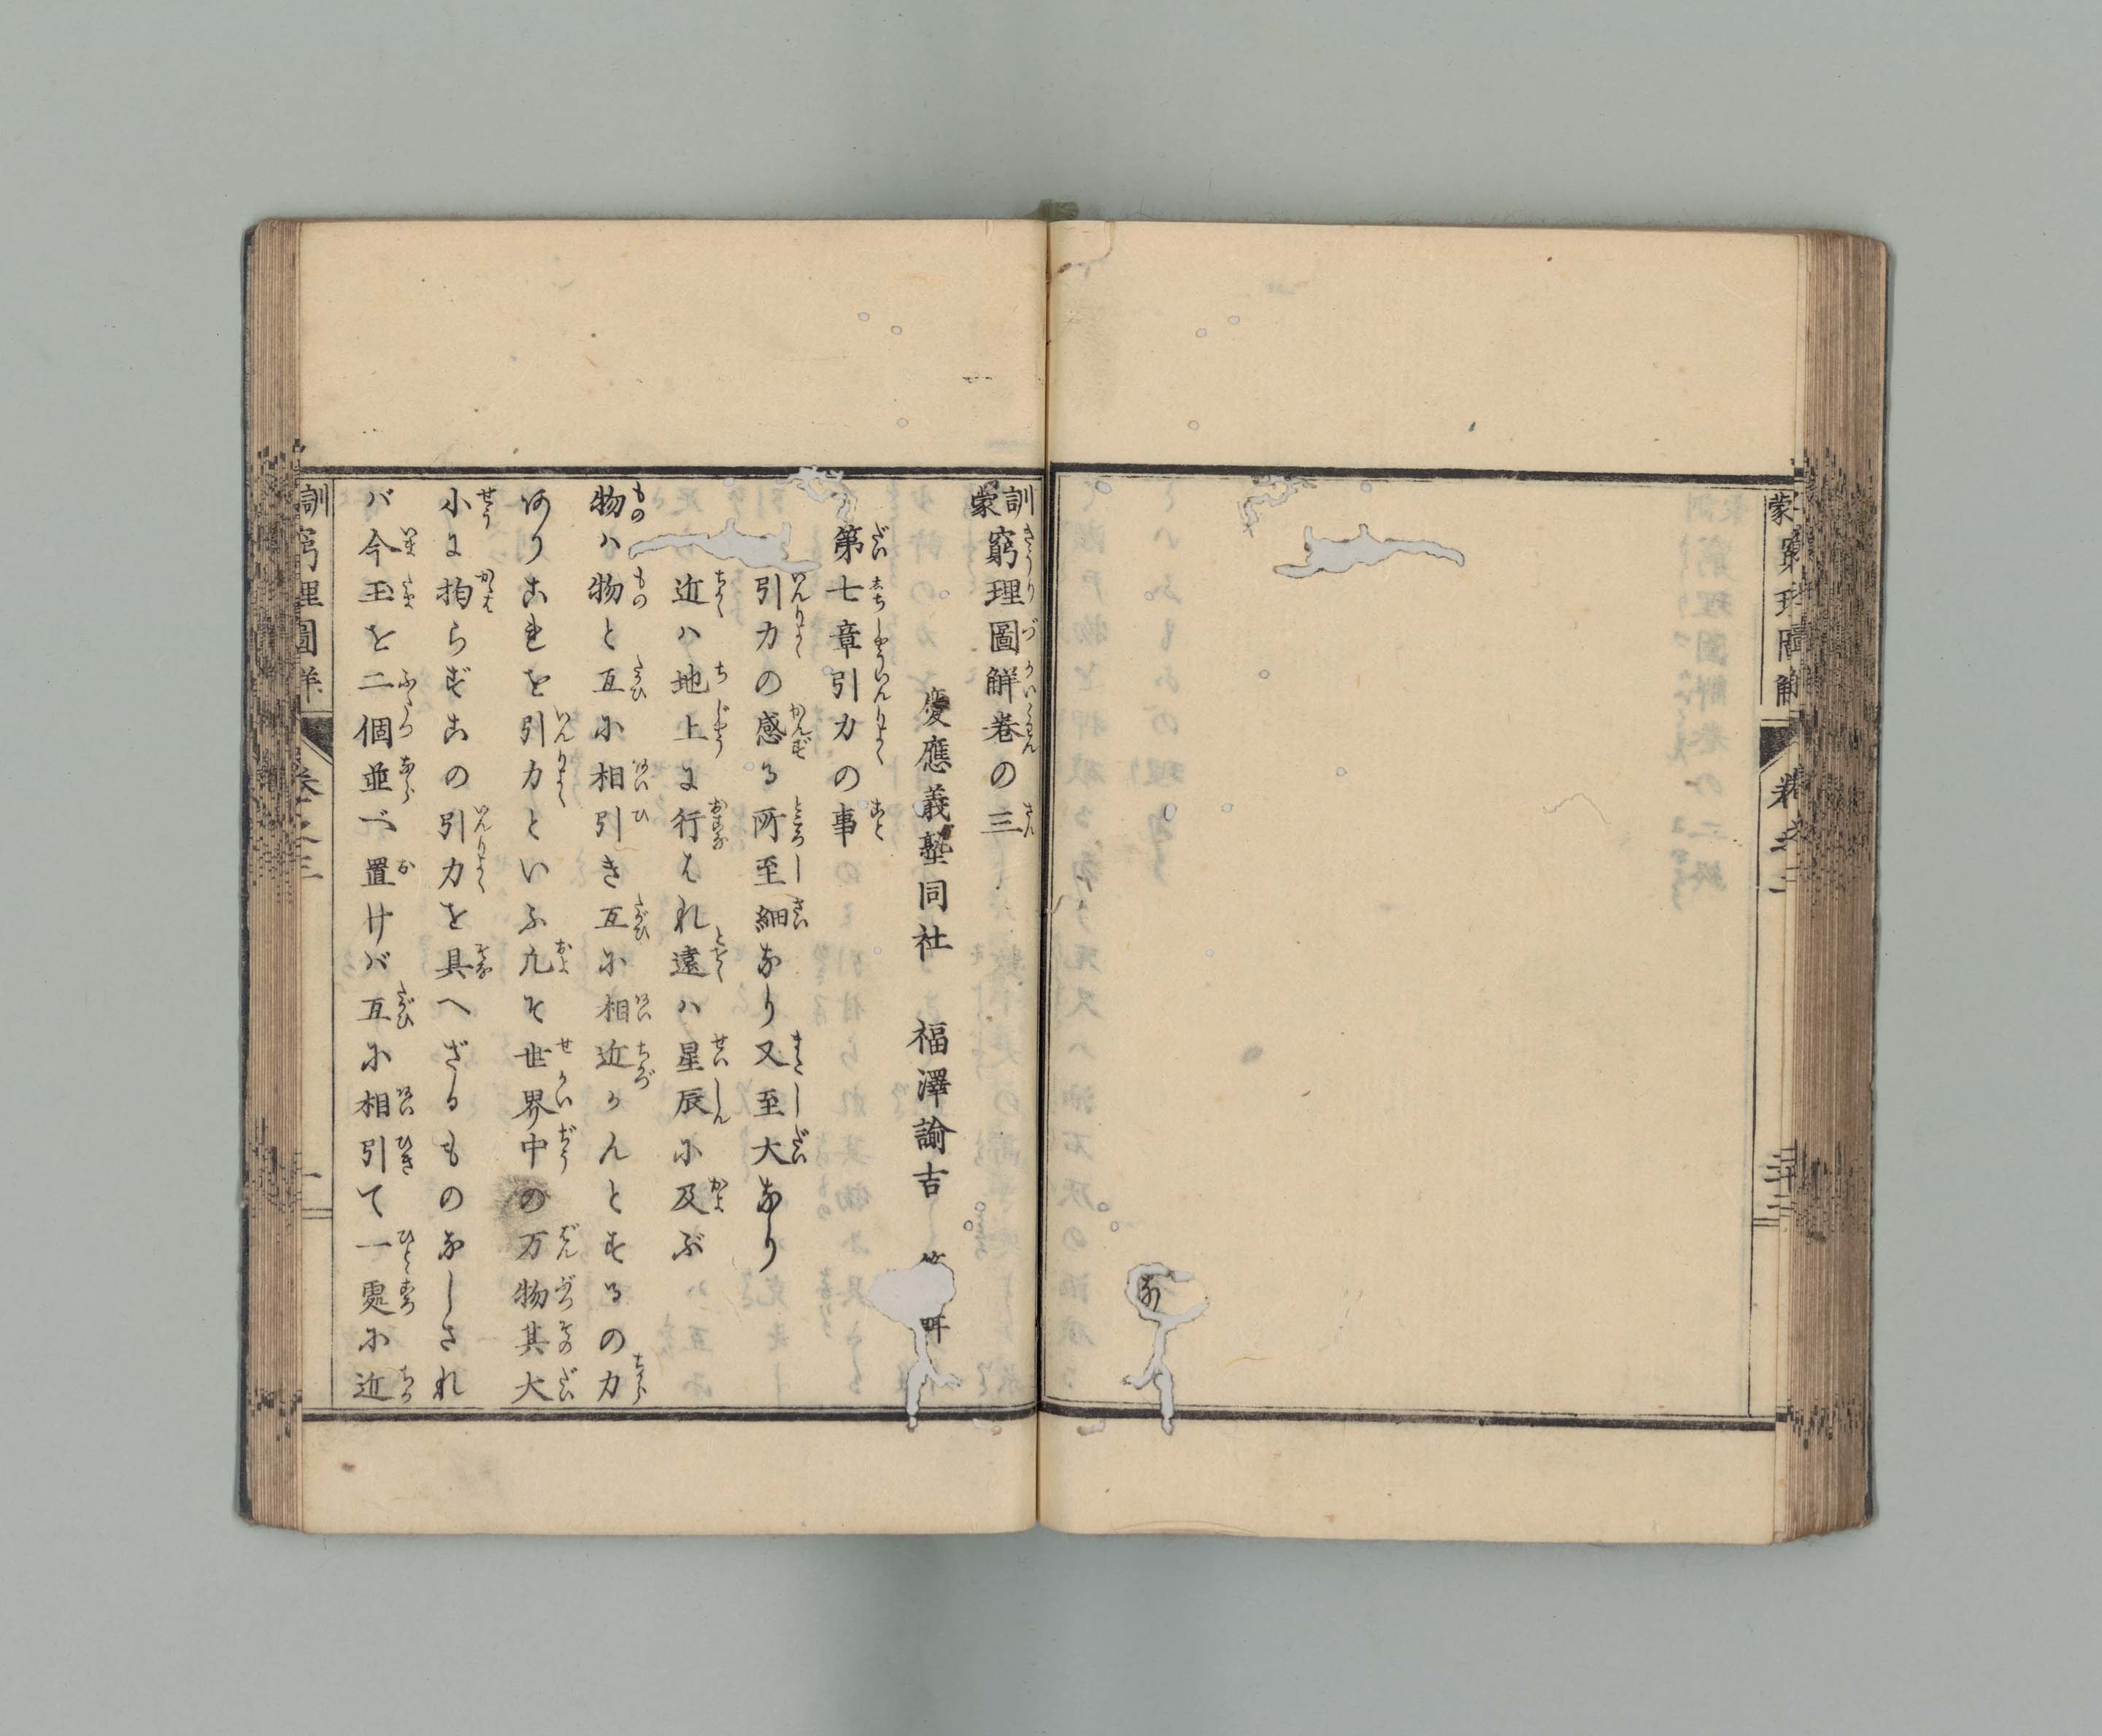 訓蒙窮理圖解巻の三
慶應義塾同社 福澤諭吉
第七章引力の事
引力の感ずる所至細なり又至大なり
近ハ地上に行はれ遠ハ星辰に及ぶ
物ハ物と互に相引き互に相近かんとするの力
ありこれを引力といふ凡そ世界中の万物其大
小に拘らずこの引力を具へざるものなしされ
バ今玉を二個並べ置けバ互に相引て一處に近
訓窮理圖解 巻之三 一